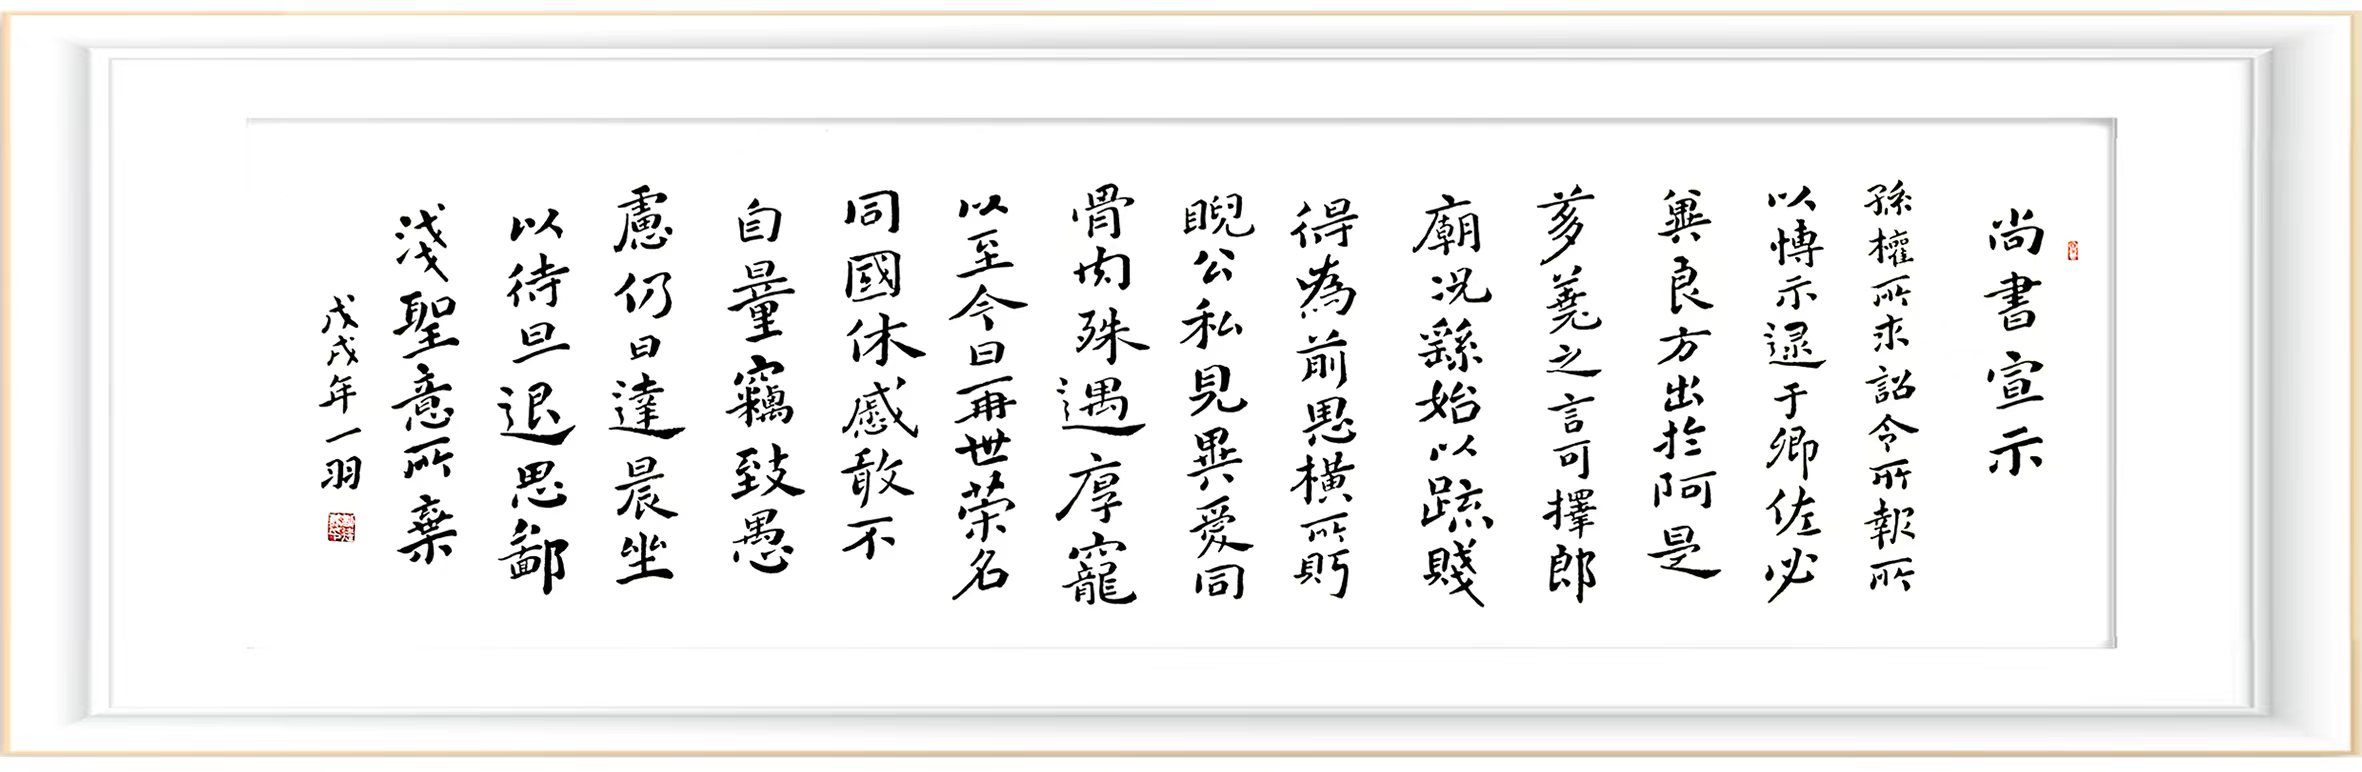 尚書宣示
孫權所求詔令所報所
以博示逮于卿佐必
冀良方出於阿是
芻蕘之言可擇郎
廟況繇始以疏賤
得為前恩橫所眄
睨公私見異愛同
骨肉殊遇厚寵
以至今日再世榮名
同國休慼敢不
自量竊致愚
慮仍日達晨坐
以待旦退思鄙
淺聖意所棄
戊戌年一羽